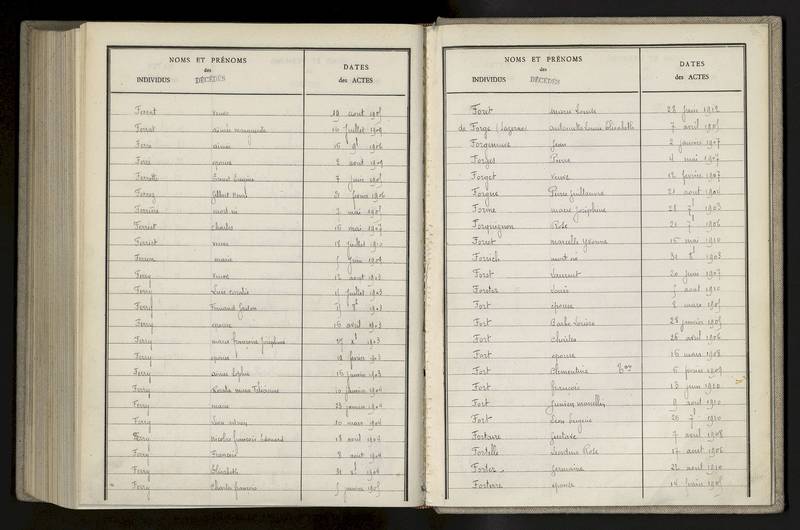 NOMS ET PRÉNOMS
des
INDIVIDUS DÉCÉDÉS
DATES
des ACTES
Ferrat veuve 19 aout 1905
Ferrat aimée marguerite 16 juillet 1909
Ferre aimée 16 9b 1906
Ferré epouse 2 aout 1909
Ferrette Eugène 7 juin 1905
Ferrez Gilbert Henri 21 fevrier 1906
Ferrière mort né 7 mai 1905
Ferriet charles 16 mai 1907
Ferriet veuve 18 juillet 1910
Ferron marie 5 juin 1909
Ferry veuve 12 aout 1903
Ferry Luce 11 juillet 1903
Ferry Fernand Gaston
Ferry epouse 16 avril 1903
Ferry marie françoise Joséphine 1903
Ferry epouse 12 fevrier 1903
Ferry aimée Sophie 16 janvier 1903
Ferry 10 janvier 1904
Ferry marie 23 janvier 1904
Ferry Léon 20 mars 1904
Ferry nicolas françois Edouard 18 avril 1904
Ferry François 8 aout 1904
Ferry Elisabeth 31 1904
Ferry Charles françois 5 janvier 1905
NOMS ET PRÉNOMS
des
INDIVIDUS DÉCÉDÉS
DATES
des ACTES
Foret marie Louise 28 juin 1912
de Forge (Lazerme) antoinette Louise Elisabeth 7 avril 1905
Jean 2 janvier 1907
Forges Pierre 4 mai 1907
Forget veuve 12 fevrier 1907
Forgue Pierre Guillaume 21 aout 1904
Forme marie Josephine 28 7b 1903
Forquignon Rose 21 7b 1906
Foret marcelle Yvonne 16 mai 1910
Forrich mort né 31 8b 1903
Forst Laurent 20 juin 1907
Forster Louis 5 aout 1910
Fort epouse 2 mars 1905
Fort Barbe Louise 28 janvier 1905
Fort Charles 26 avril 1906
Fort epouse 16 mars 1908
Fort Clementine 6 fevrier 1909
Fort françois 13 juin 1910
Fort 9 aout 1910
Fort Léon Eugene 20 7b 1910
Fortaire Gustave 7 avril 1908
Fortelle Rose 17 aout 1906
Fortes germaine 22 aout 1910
Forterre epouse 14 juin 1905